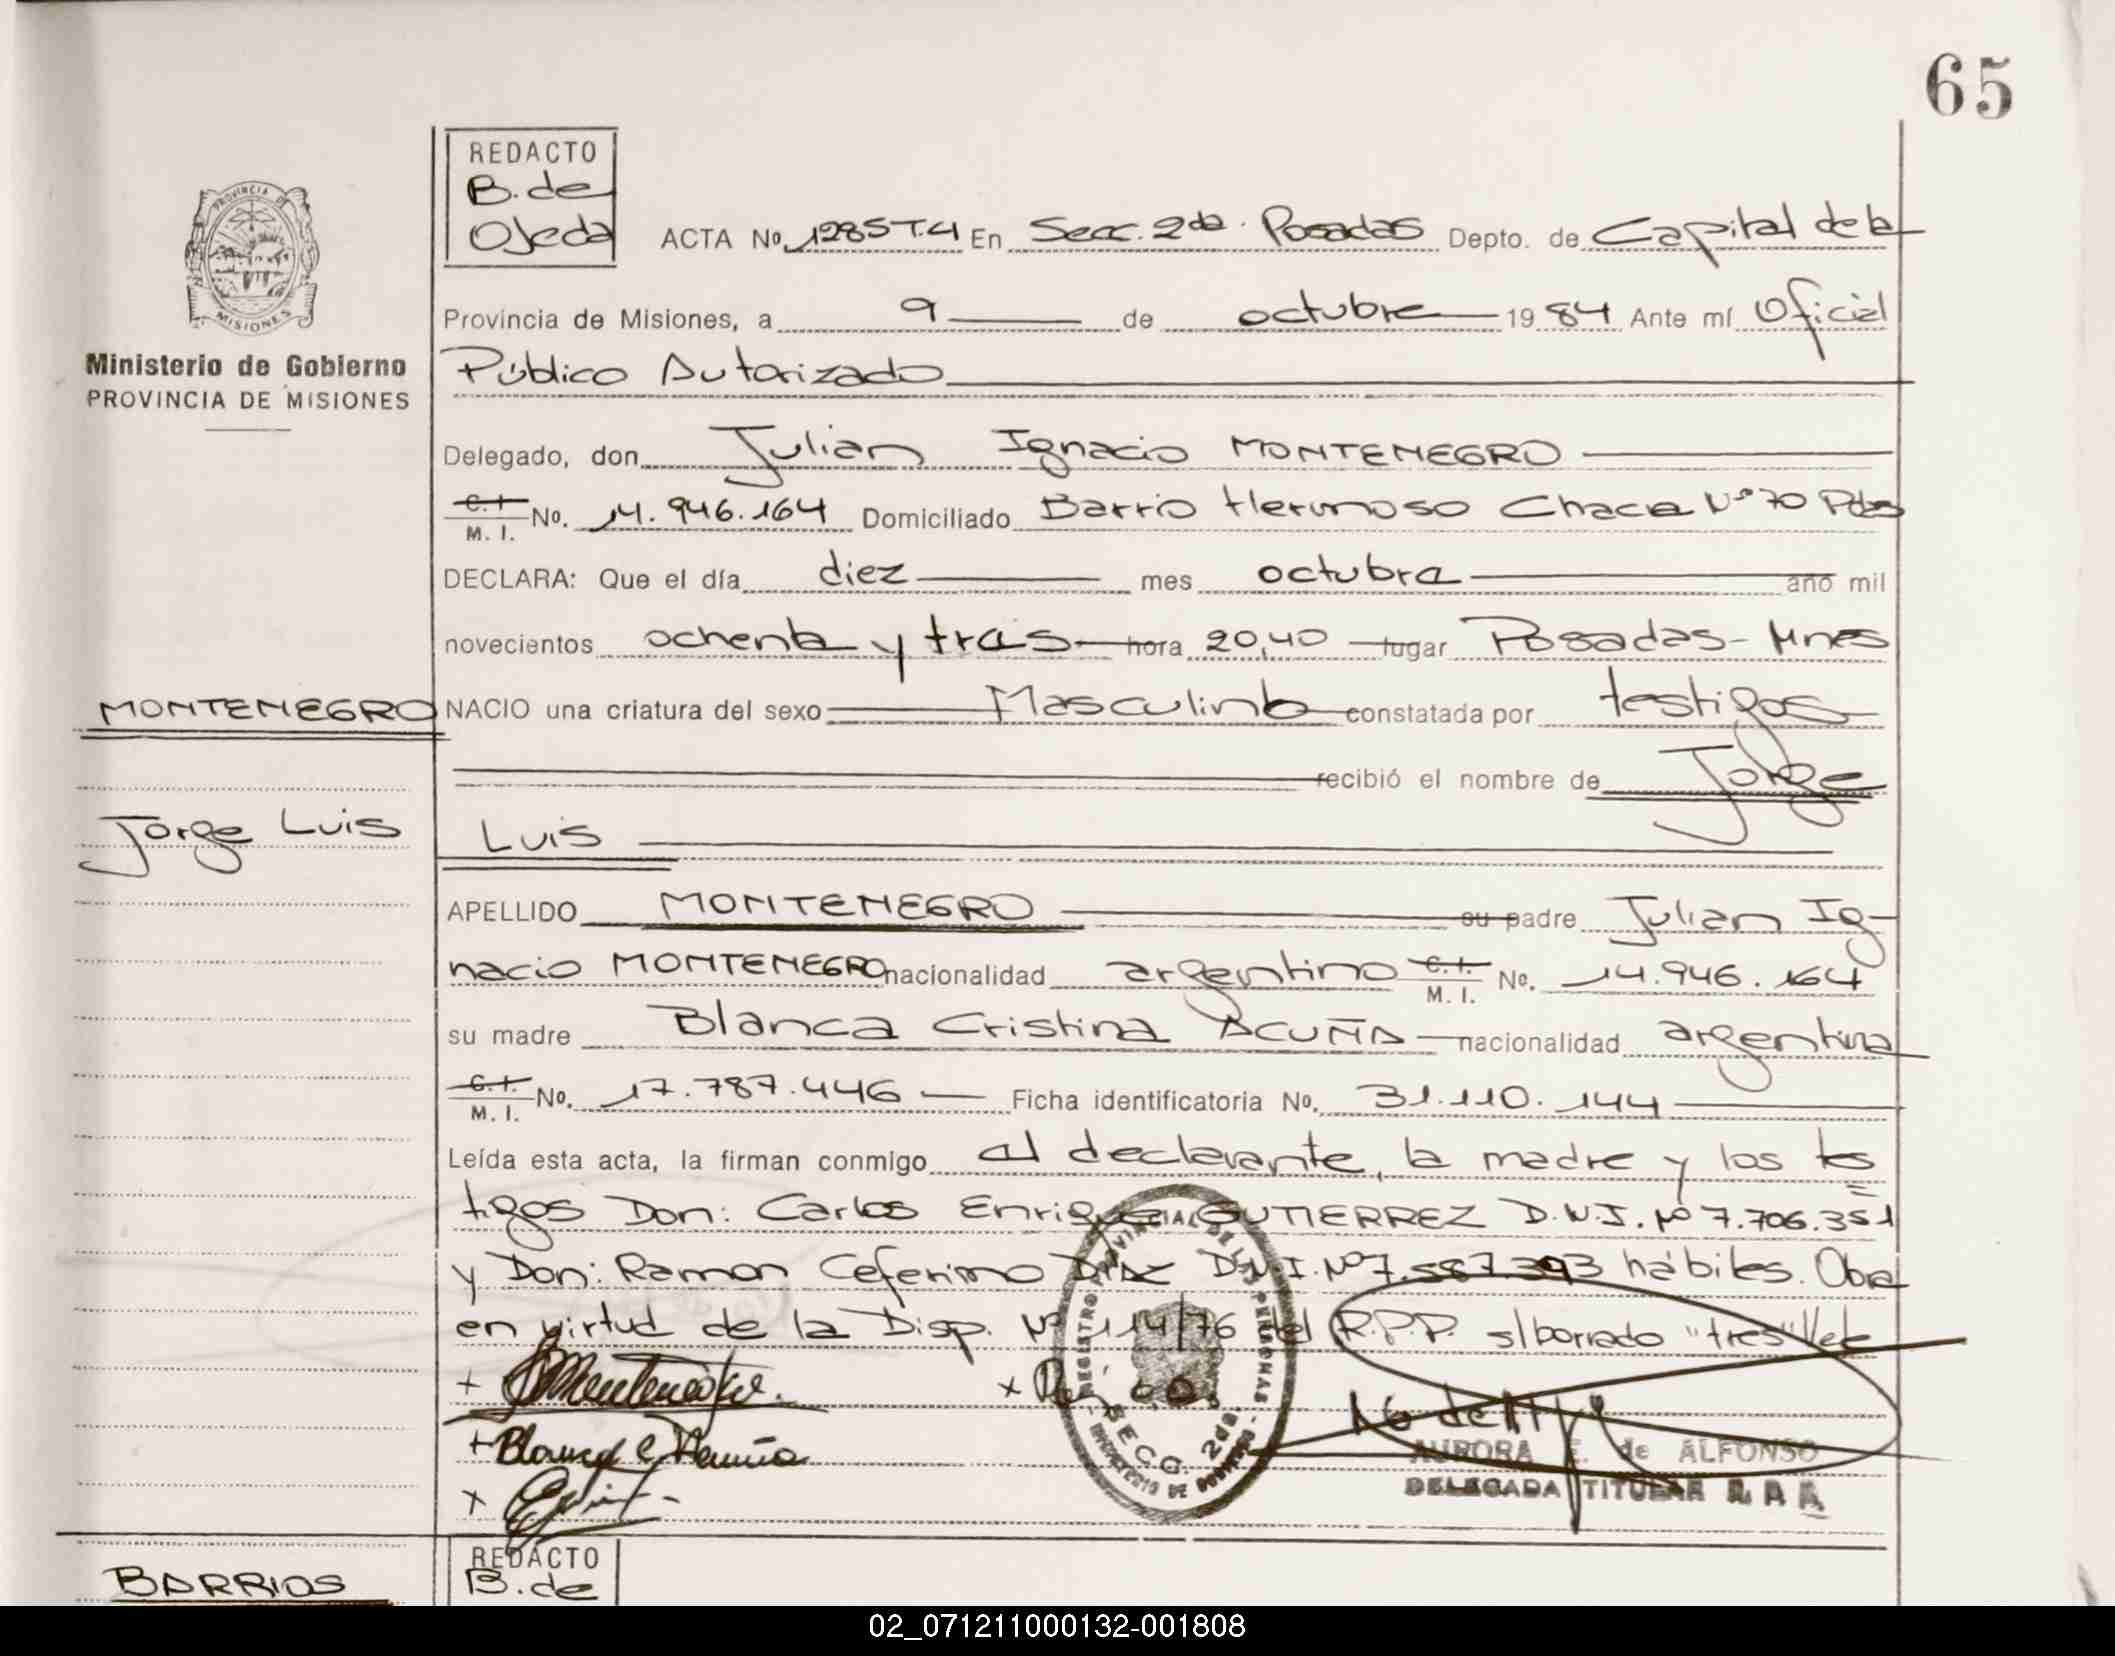 65
REDACTO
B. de
Ojeda
ACTA No. 1285 T.4 En Secc. 2da. Posadas Depto. de Capital de la
PROVINCIA DE MISIONES
Provincia de Misiones, a 9 de octubre 19 84 Ante mí Oficial
Ministerio de Gobierno
PROVINCIA DE MISIONES
Público Autorizado
Delegado, don Julian Ignacio MONTENEGRO
C. I. M. I. No. 14.946.164 Domiciliado Barrio Hermoso Chacra Nº 70 Pdas
DECLARA: Que el día diez mes octubre año mil
novecientos ochenta y tres hora 20,40 lugar Posadas - Mnes
MONTENEGRO
NACIO una criatura del sexo Masculino constatada por testigos
recibió el nombre de Jorge
Jorge Luis
Luis
APELLIDO MONTENEGRO su padre Julian Ig-
nacio MONTENEGRO nacionalidad argentino C. I. M. I. No. 14.946.164
su madre Blanca Cristina ACUÑA nacionalidad argentina
C. I. M. I. No. 17.787.446 Ficha identificatoria No. 31.110.144
Leída esta acta, la firman conmigo el declarante, la madre y los tes
tigos Don: Carlos Enrique GUTIERREZ D.N.I. Nº 7.706.351
y Don: Ramon Ceferino DIAZ D.N.I. Nº 7.587.393 hábiles. Obra
en virtud de la Disp. Nº 114/76 del R.P.P. s/borrado "tres" Vale
REGISTRO PROVINCIAL DE LAS PERSONAS
SECC. 2da.
MINISTERIO DE GOBIERNO
Blanca C Acuña
AURORA E. de ALFONSO
DELEGADA TITULAR
BARRIOS
REDACTO
B. de
02_071211000132-001808